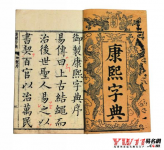 康熙字典
御製康熙字典序
易傳曰上古結繩而
治後世聖人易之以
書契百官以治萬民
YW11